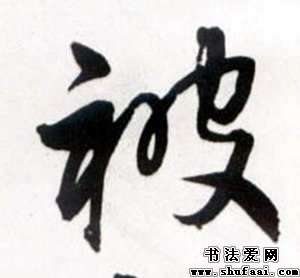 被
书法爱网
www.shufaai.com